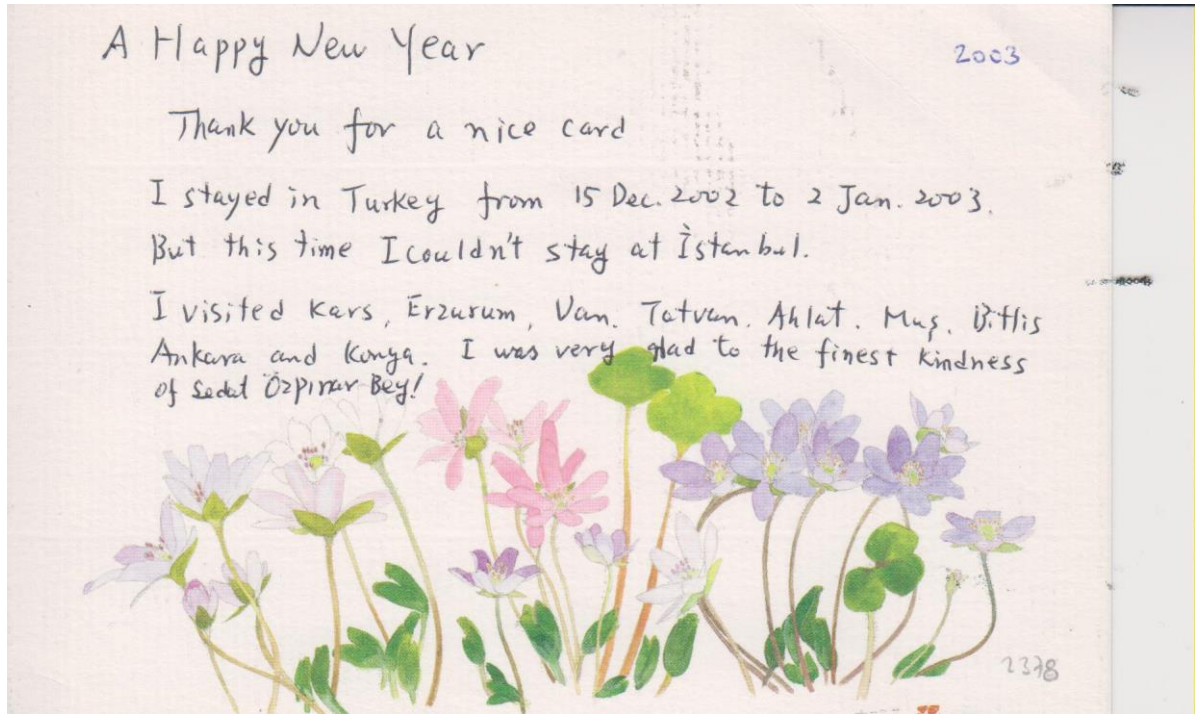 A Happy New Year
2003
Thank you for a nice card
I stayed in Turkey from 15 Dec. 2002 to 2 Jan. 2003.
But this time I couldn't stay at İstanbul.
I visited Kars, Erzurum, Van. Tatvan. Ahlat. Muş, Bitlis
Ankara and Konya. I was very glad to the finest kindness
of Sedat Özpınar Bey!
2378